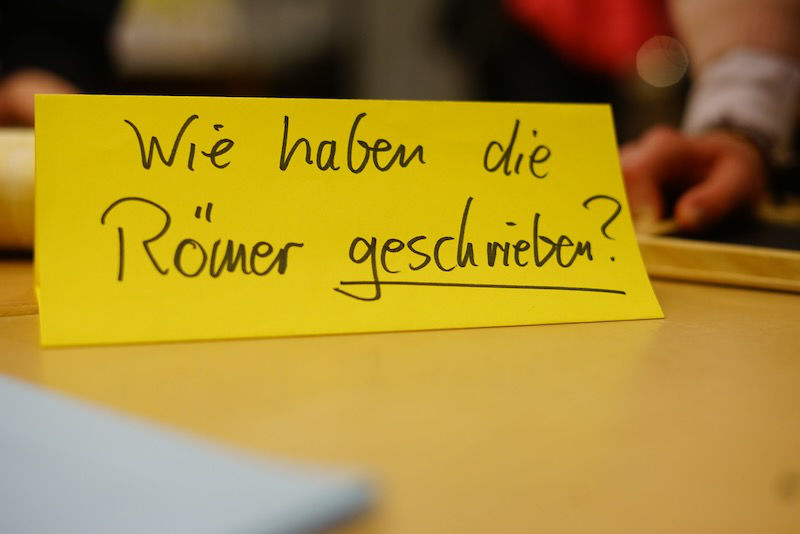 Wie haben die
Römer geschrieben?